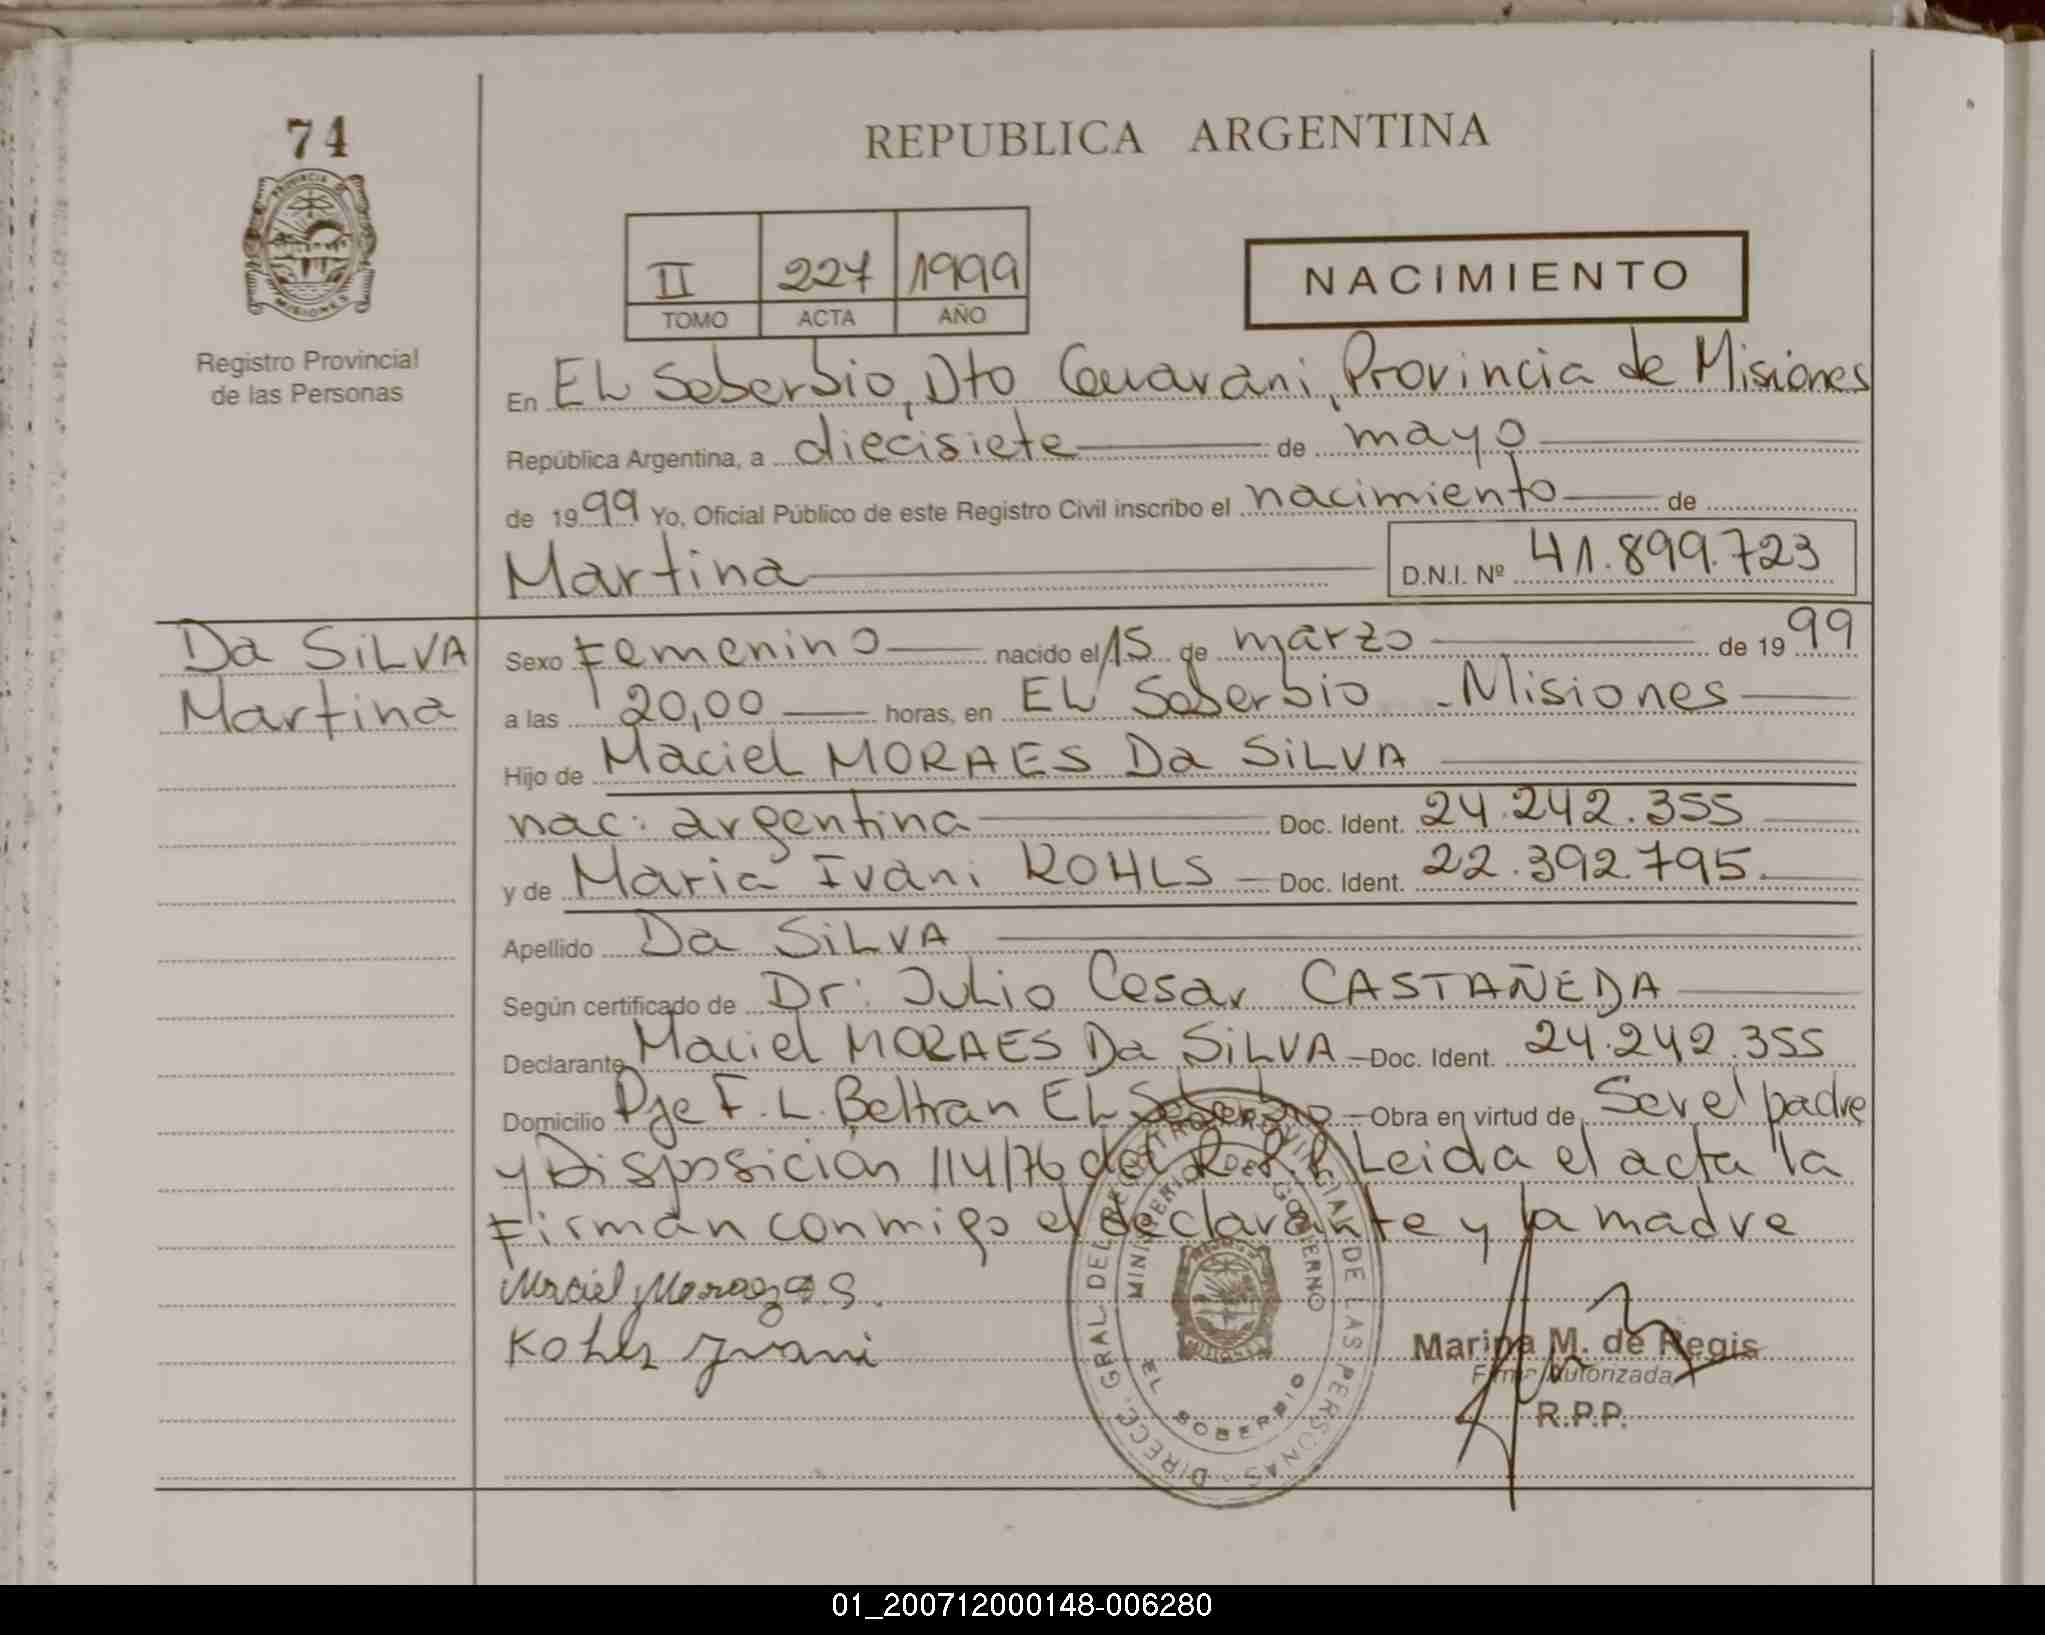 74
PROVINCIA DE
MISIONES
Registro Provincial
de las Personas
REPUBLICA ARGENTINA
II 227 1999
TOMO ACTA AÑO
NACIMIENTO
En EL Soberbio, Dto Guarani, Provincia de Misiones
República Argentina, a diecisiete de mayo
de 1999 Yo, Oficial Público de este Registro Civil inscribo el nacimiento de
Martina D.N.I. Nº 41.899.723
Da SiLVA
Martina
Sexo Femenino nacido el 15 de marzo de 1999
a las 20,00 horas, en EL Soberbio - Misiones
Hijo de Maciel MORAES Da SiLVA
nac: argentina Doc. Ident. 24.242.355
y de Maria Ivani KOHLS Doc. Ident. 22.392.795
Apellido Da SiLVA
Según certificado de Dr: Julio Cesar CASTAÑEDA
Declarante Maciel MORAES Da SiLVA Doc. Ident. 24.242.355
Domicilio Pje F. L. Beltran EL Soberbio Obra en virtud de Ser el padre
y Disposición 114/76 del R.P.P. Leida el acta la
Firman conmigo el declarante y la madre
Maciel Moraes D. S.
Kohls Ivani
DIRECC. GRAL DEL REGISTRO PROVINCIAL DE LAS PERSONAS
MINISTERIO DE GOBIERNO
EL SOBERBIO
Marina M. de Regis
Firma Autorizada
R.P.P.
01_200712000148-006280